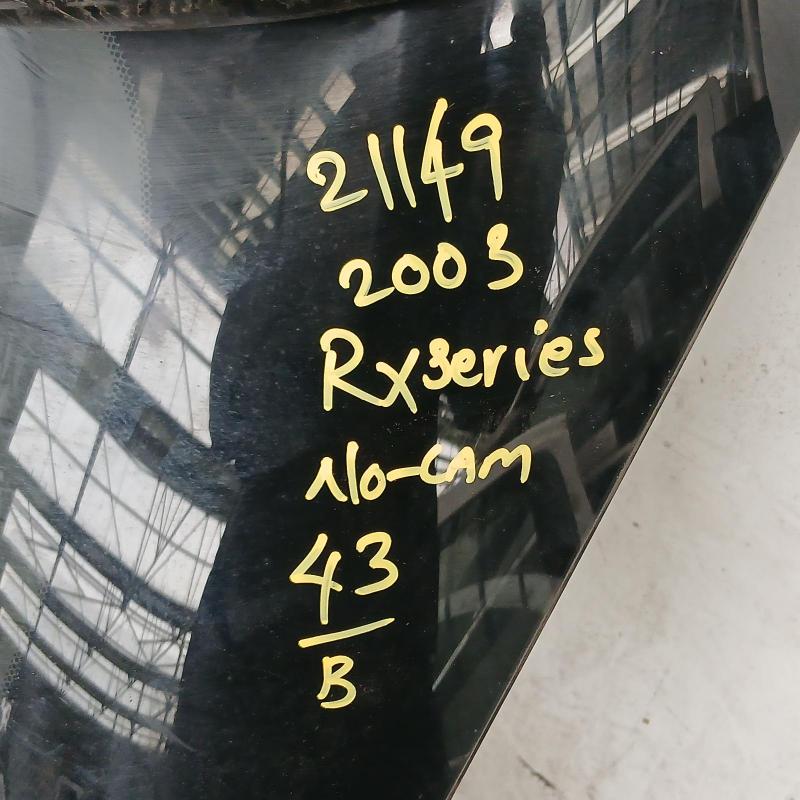 21149
2003
Rx series
No-CAM
43
B